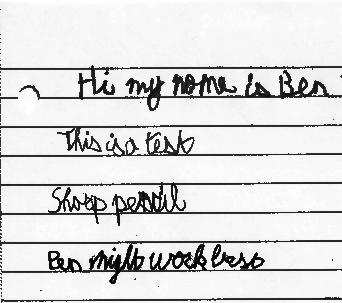 Hi my name is Ben
This is a test
Sharp pencil
Ben might work best